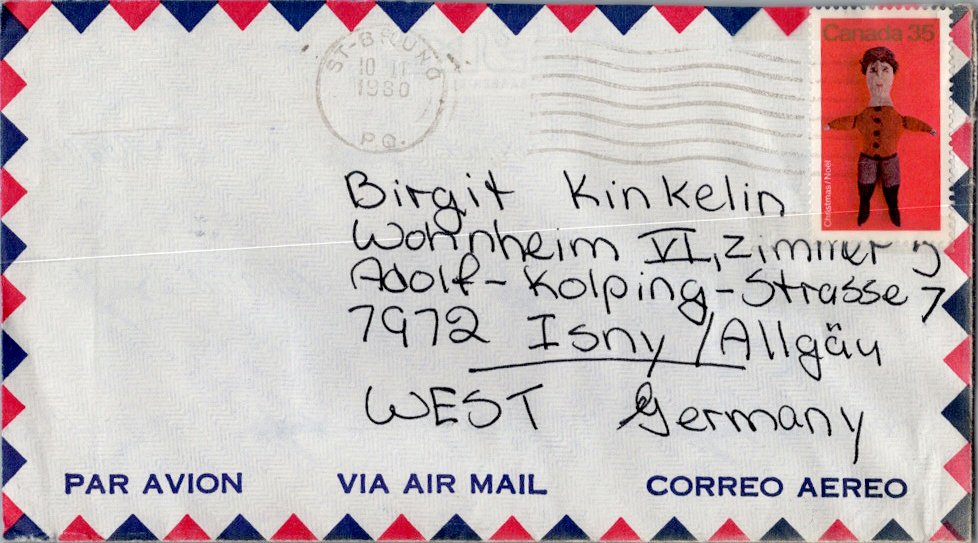 Canada 35
Christmas/Noël
ST-BRUNO
10 II
1980
P.Q.
Birgit Kinkelin
Wohnheim VI, Zimmer
Adolf-Kolping-Strasse 7
7972 Isny/Allgäu
WEST Germany
PAR AVION VIA AIR MAIL CORREO AEREO